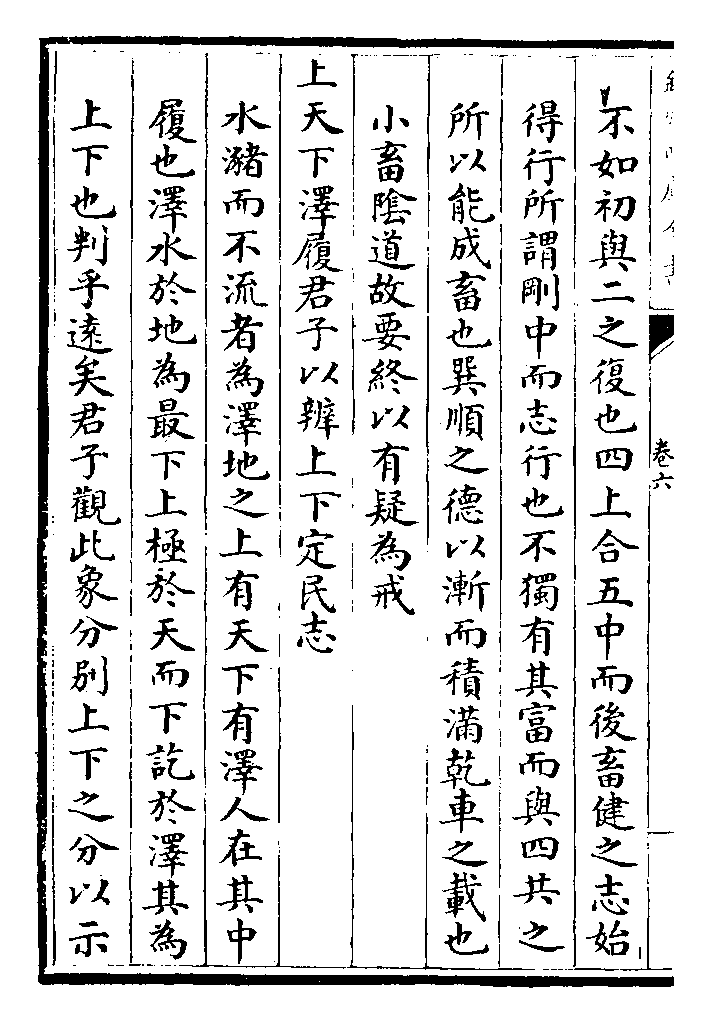 卷六
不如初與二之復也四上合五中而後畜健之志始
得行所謂剛中而志行也不獨有其富而與四共之
所以能成畜也巽順之德以漸而積滿乾車之載也
小畜陰道故要終以有疑為戒
上天下澤履君子以辨上下定民志
水瀦而不流者為澤地之上有天下有澤人在其中
履也澤水於地為最下上極於天而下訖於澤其為
上下也判乎遠矣君子觀此象分別上下之分以示